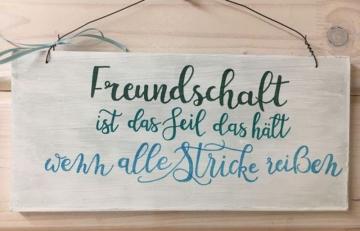 Freundschaft
ist das Seil das hält
wenn alle Stricke reißen